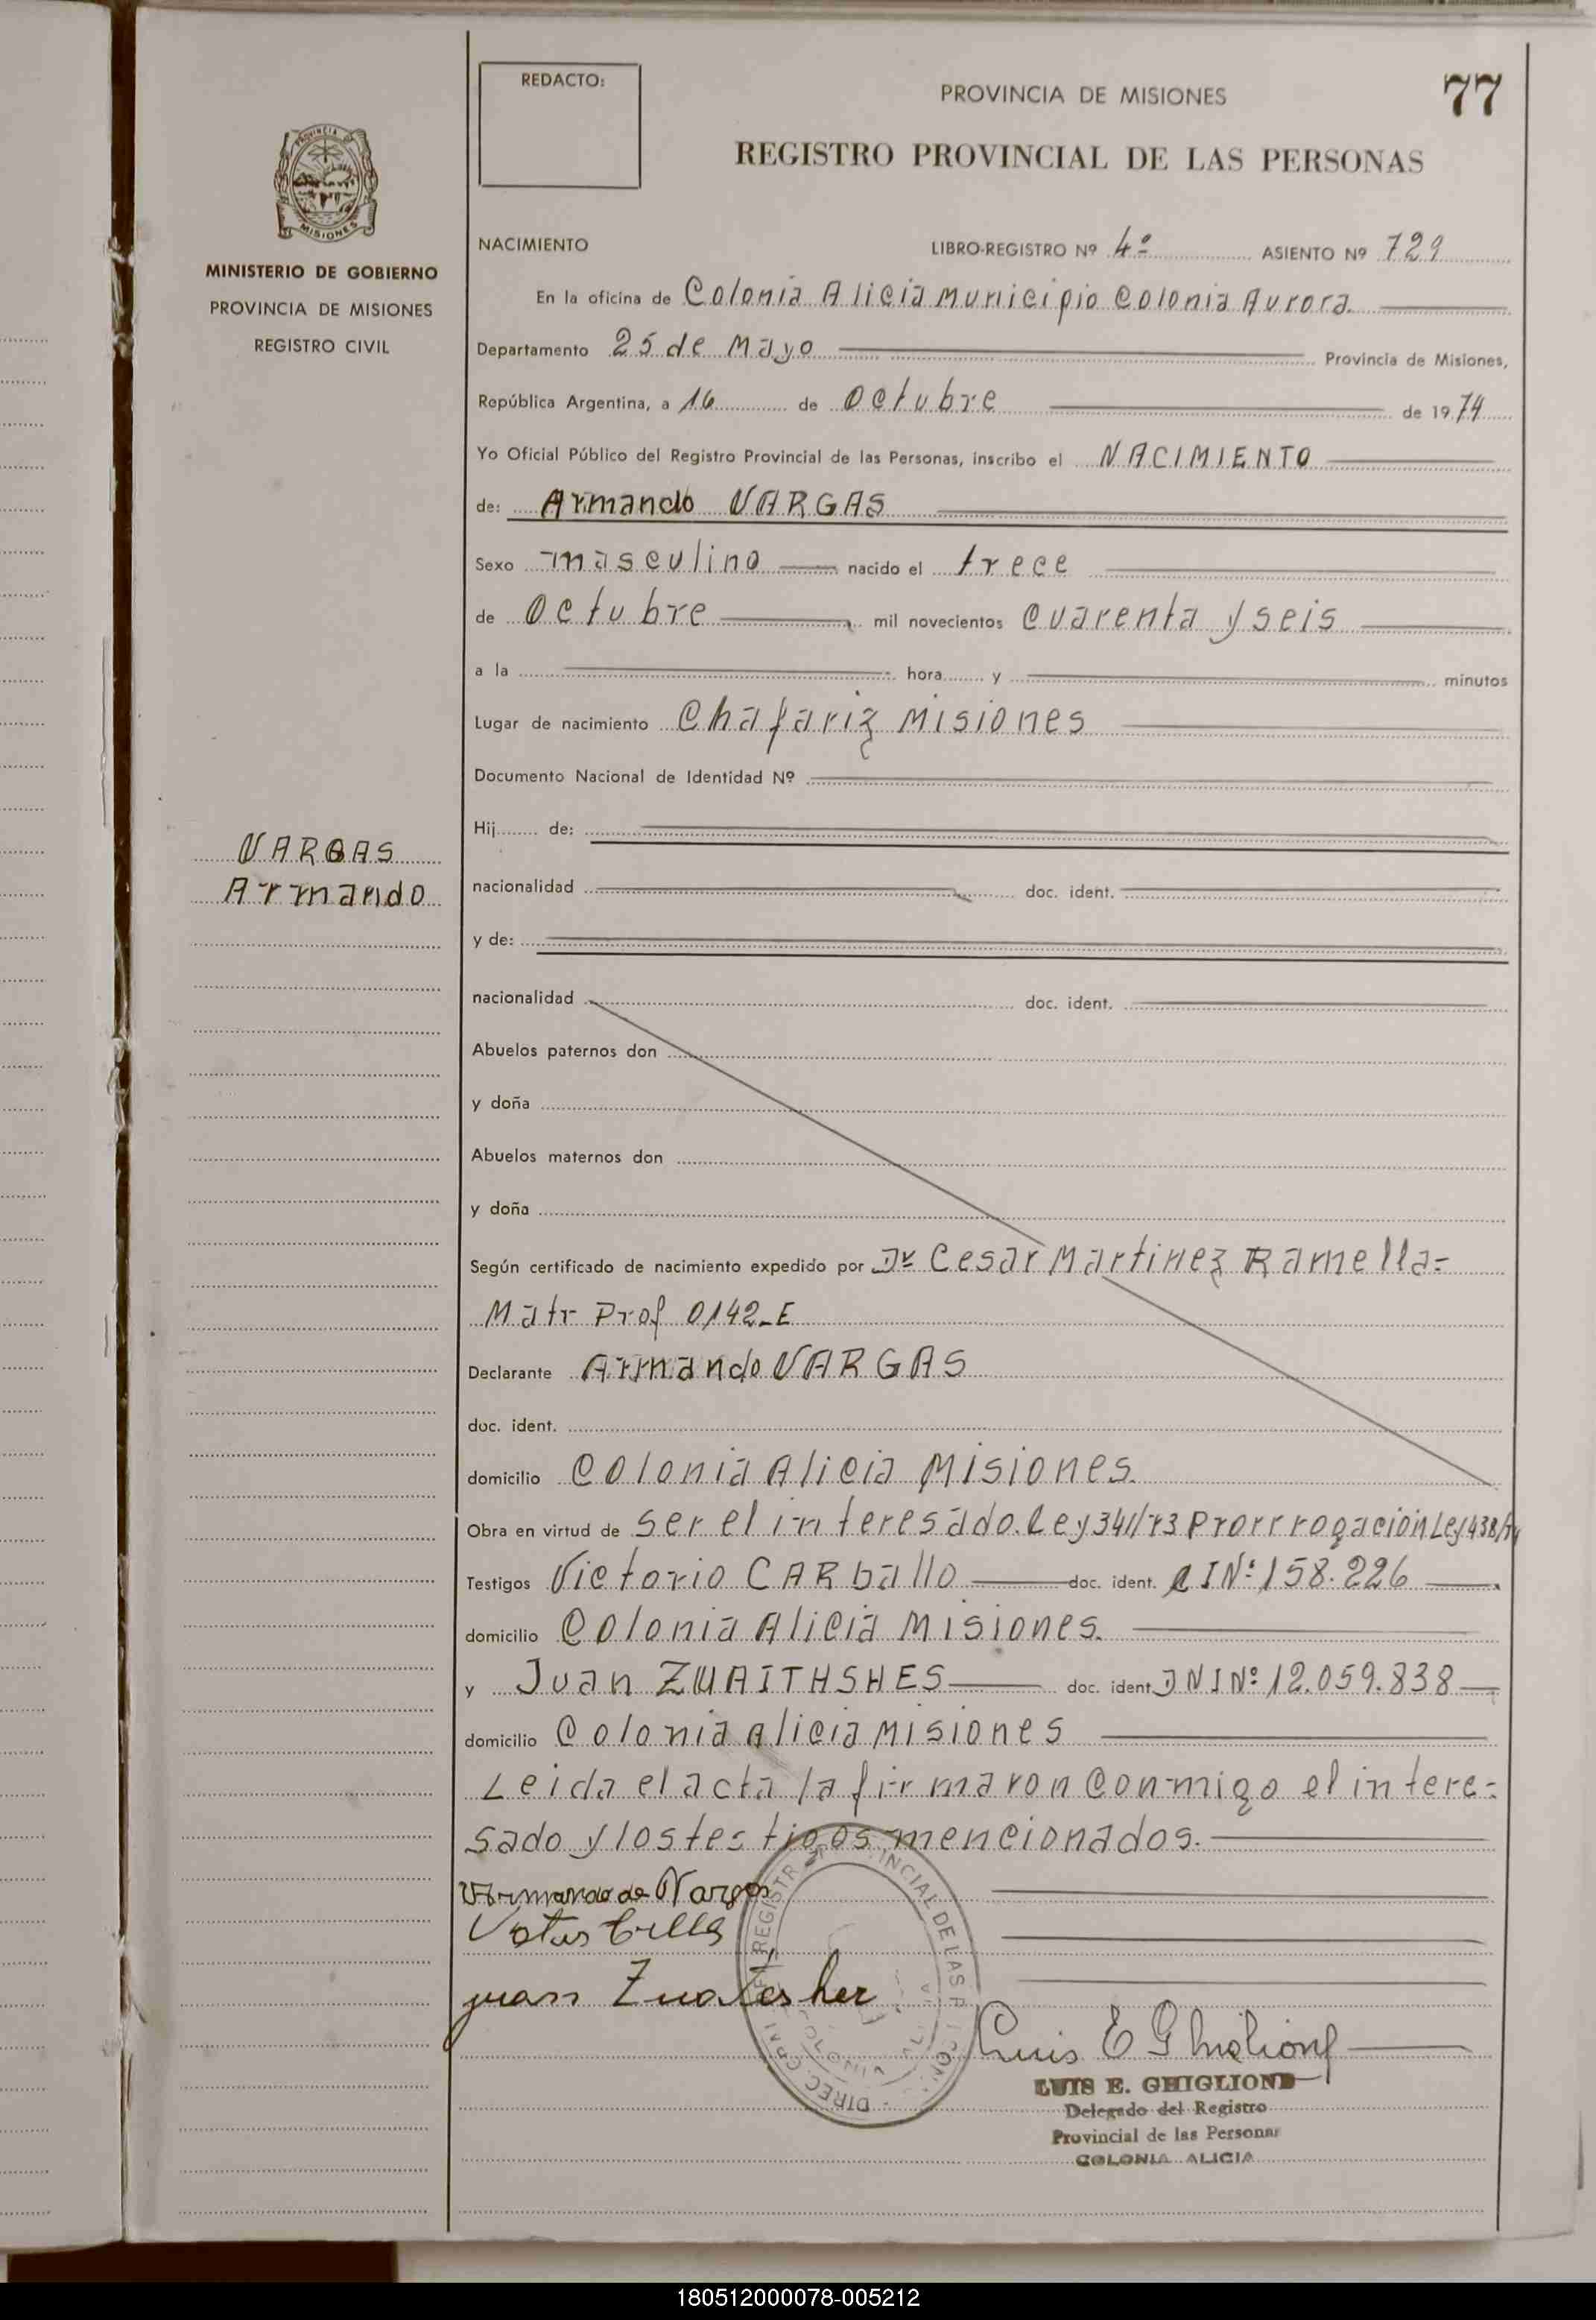 REDACTO:
PROVINCIA DE MISIONES
77
REGISTRO PROVINCIAL DE LAS PERSONAS
PROVINCIA DE
MISIONES
MINISTERIO DE GOBIERNO
PROVINCIA DE MISIONES
REGISTRO CIVIL
NACIMIENTO LIBRO-REGISTRO Nº 4º ASIENTO Nº 729
En la oficina de Colonia Alicia Municipio Colonia Aurora.
Departamento 25 de Mayo Provincia de Misiones,
República Argentina, a 16 de Octubre de 1974
Yo Oficial Público del Registro Provincial de las Personas, inscribo el NACIMIENTO
de: Armando VARGAS
Sexo masculino nacido el trece
de Octubre mil novecientos cuarenta y seis
a la hora y minutos
Lugar de nacimiento Chafariz Misiones
Documento Nacional de Identidad Nº
Hij de:
VARGAS
Armando
nacionalidad doc. ident.
y de:
nacionalidad doc. ident.
Abuelos paternos don
y doña
Abuelos maternos don
y doña
Según certificado de nacimiento expedido por Dr Cesar Martinez Ramella=
Matr Prof 0142-E
Declarante Armando VARGAS
doc. ident.
domicilio Colonia Alicia Misiones.
Obra en virtud de ser el interesado. Ley 341/73 Prorrrogación Ley 438/74
Testigos Victorio CARballo doc. ident. CI Nº 158.226
domicilio Colonia Alicia Misiones.
y Juan ZWAITHSHES doc. ident DNI Nº 12.059.838
domicilio Colonia Alicia Misiones
Leida el acta la firmaron conmigo el intere=
sado y los testigos mencionados.
Armando de Vargas
juan
Luis E Ghiglione
LUIS E. GHIGLIONE
Delegado del Registro
Provincial de las Personas
COLONIA ALICIA
180512000078-005212